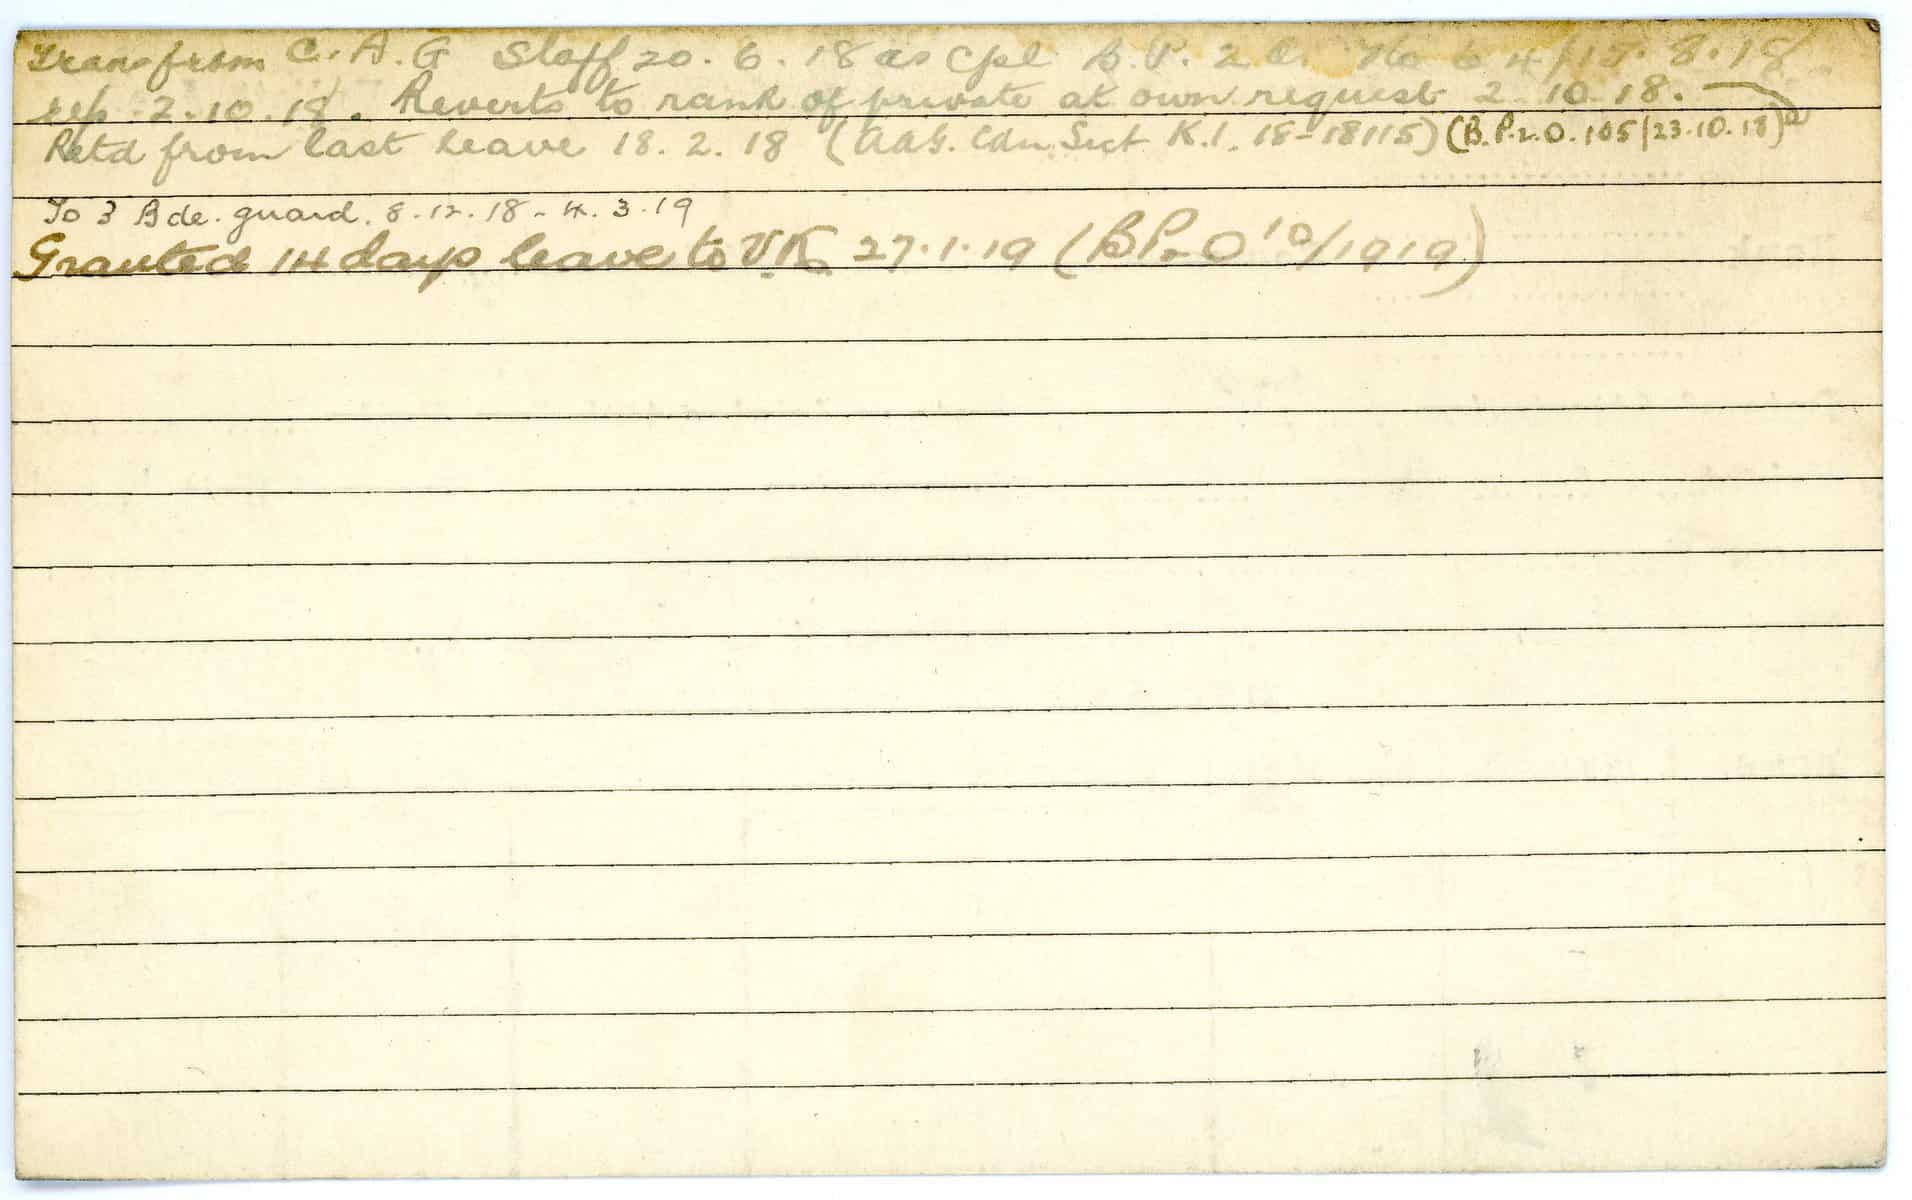 Trans from C. A. G Staff 20. 6. 18 as Cpl B. P. 2 O. No 64/15. 8. 18
rep 2.10.18. Reverts to rank of private at own request 2-10-18.
Retd from last leave 18. 2. 18 (AAG. Cdn. Sect K.1. 18-18115) (B.P.2.O.105/23.10.18)
To 3 Bde. guard. 8.12.18 - 4.3.19
Granted 14 days leave to U.K. 27.1.19 (BP2O 10/1919)